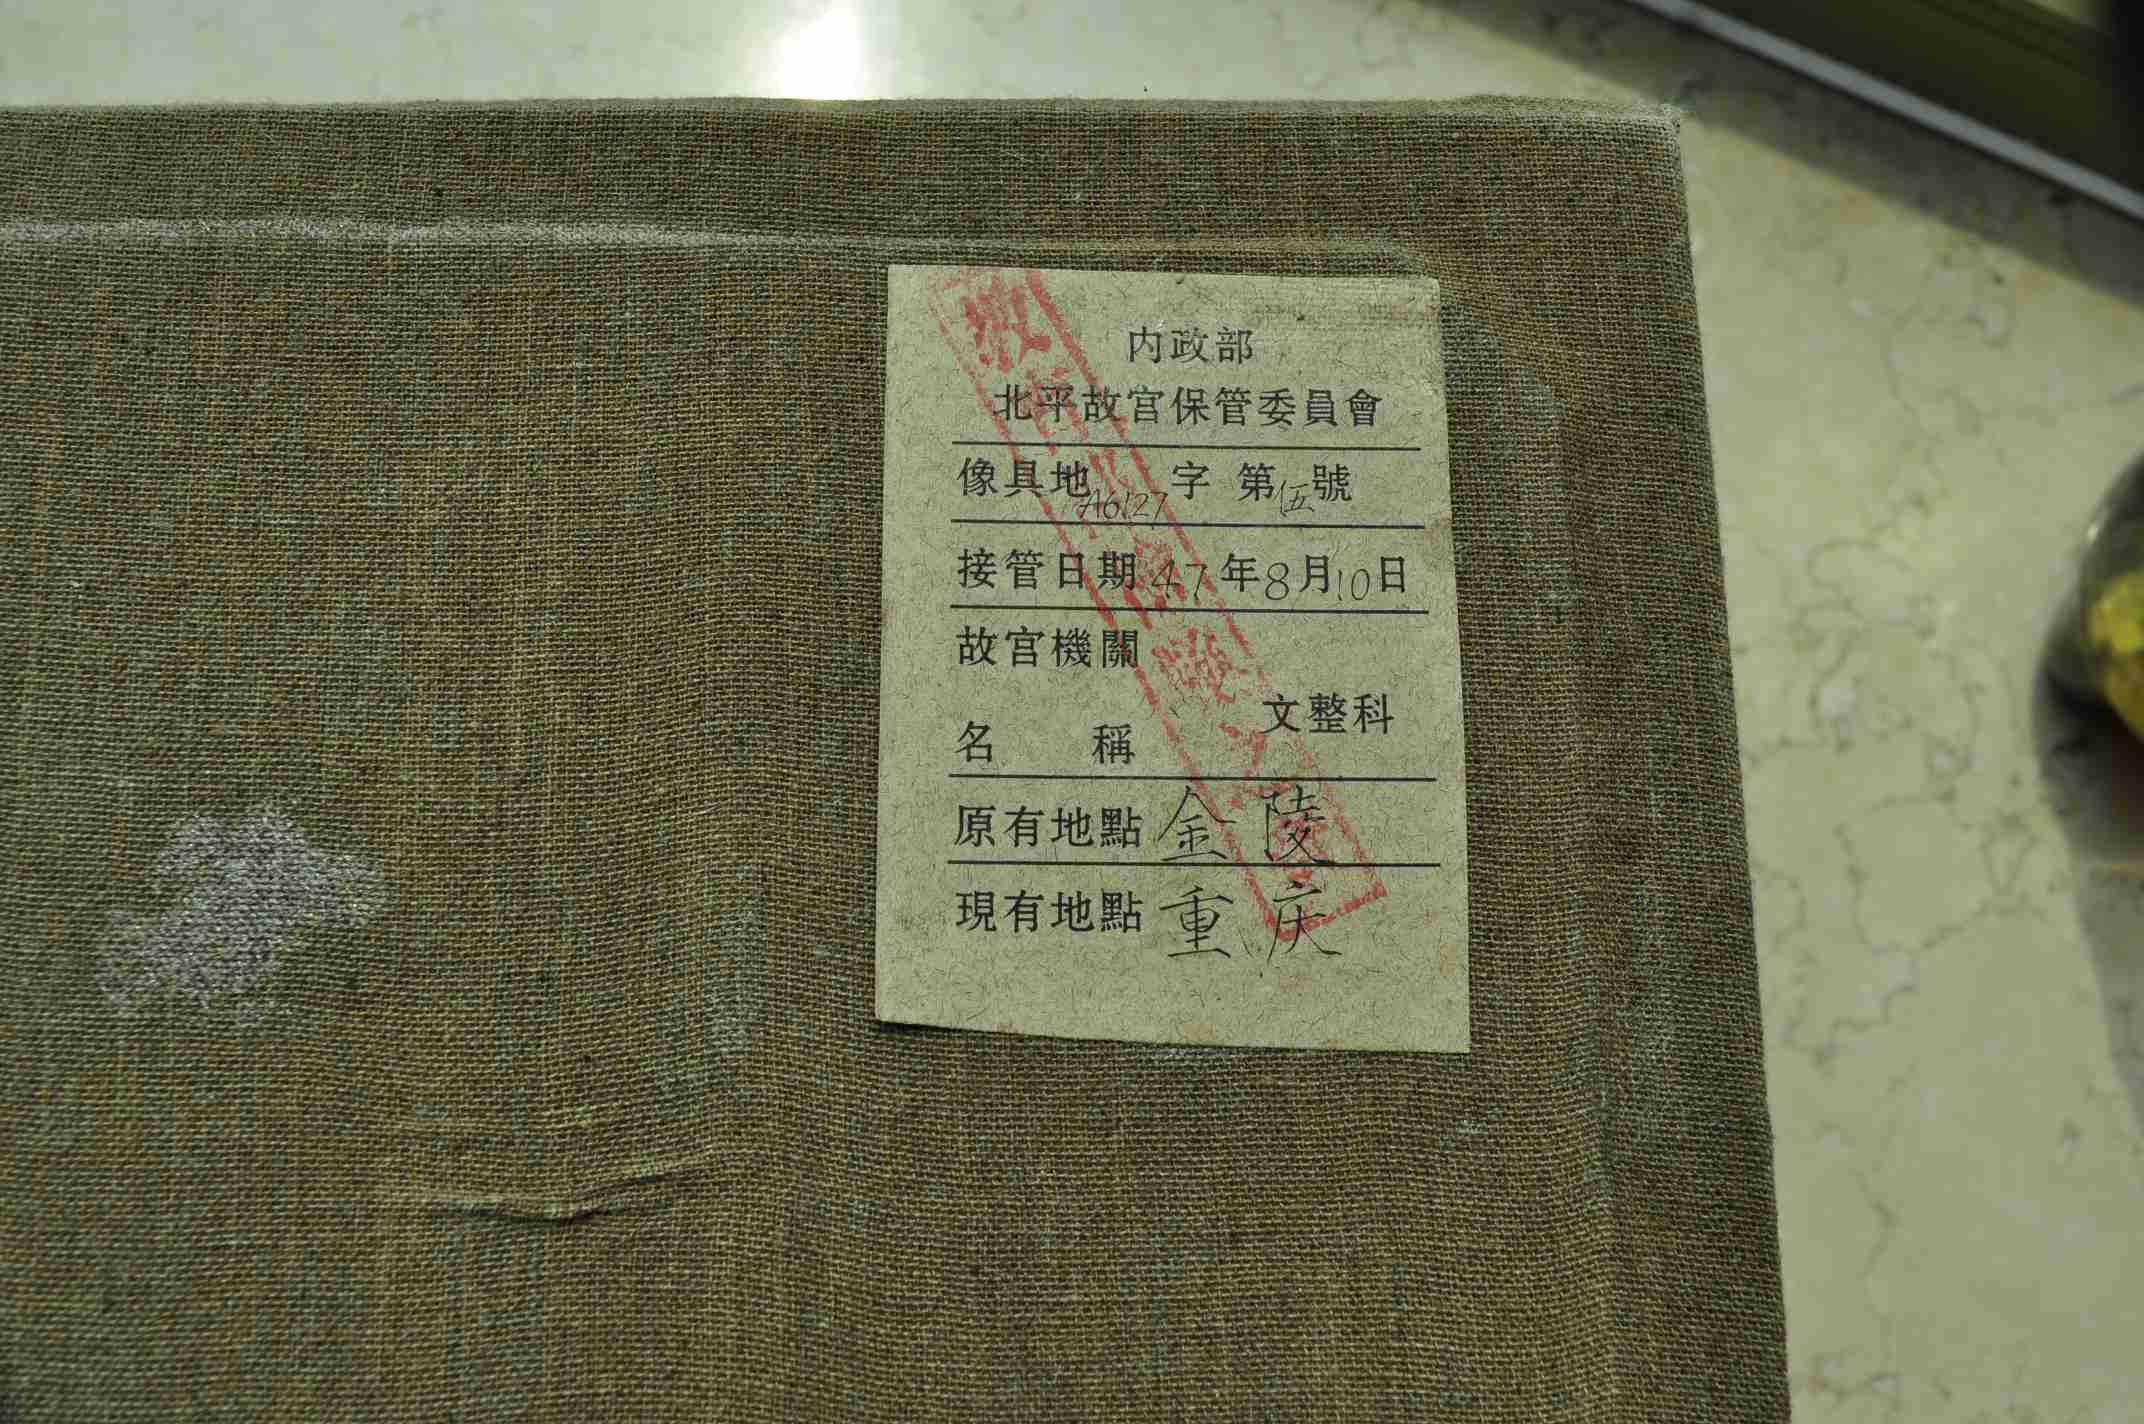 内政部
北平故宫保管委員會
像具地A6127字 第伍號
接管日期47年8月10日
故宫機關
名 稱 文整科
原有地點金陵
現有地點重庆